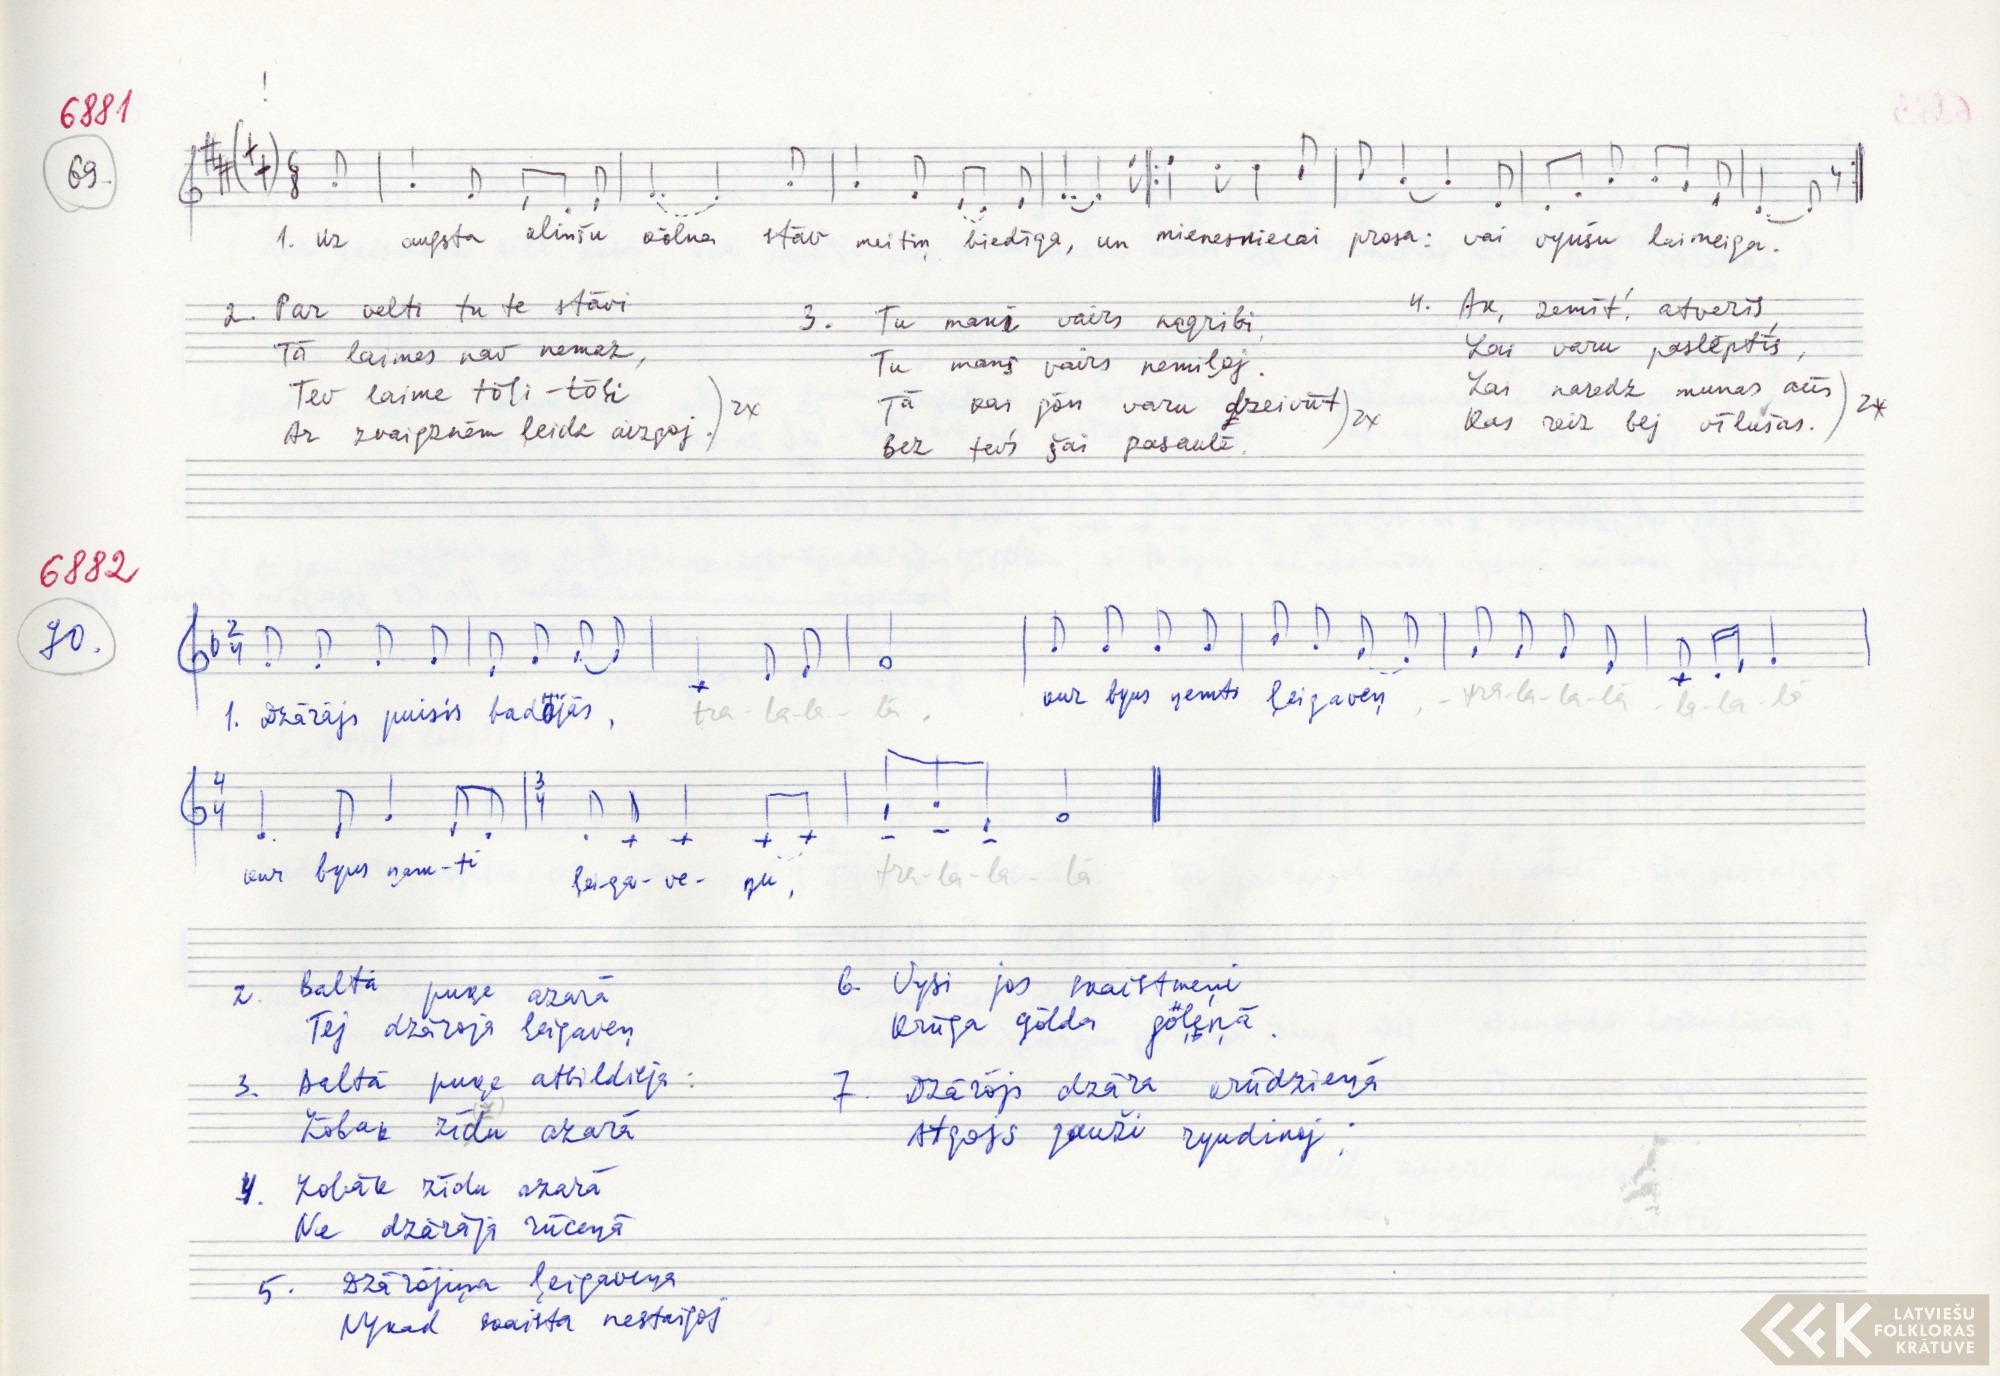 6881
69.
1. uz augsta olinšu kōlna stāv meitiņ biedīga, un mienesniecai prosa: vai vyušu laimeiga.
2. Par velti tu te stāvi
Tā laimes nav nemaz,
Tev laime tōļi-tōļi
Ar zvaigznēm ļeidz aizgoj.) 2x
3. Tu manį vairs nagribi,
Tu manį vairs nemiļoj.
Tā kai jōu varu dzeivūt) 2x
Bez tevš šai pasaulē.
4. Ak, zemīt, atverīs,
Lai varu paslēptīs,
Lai naredz munas acīs) 2x
Kas reiz bej vīlušas.
6882
70.
1. Dzārājs puisis badōjās, tra-la-la-lā. kur byus ņemts ļeigaveņ, - tra-la-la-lā - la-la-lā
kur byus ņem-ti ļei-ga-ve-ņu, tra-la-la-lā
2. Balta puķe azarā
Tej dzāroja ļeigaveņ
3. Baltā puķe atbildieja:
Lōbak zīdu azarā
4. Lobāk zīdu azarā
Ne dzārāja rūceņā
5. Dzārōjiņa ļeigaveņa
Nykad skaista nestaigoj
6. Vyši jos skaistmeņi
Krūga gōlda gōļeņā.
7. Dzārōjs dzāra krūdzieņā
Atgojs gauži ryudinoj;
LATVIEŠU
FOLKLORAS
KRĀTUVE